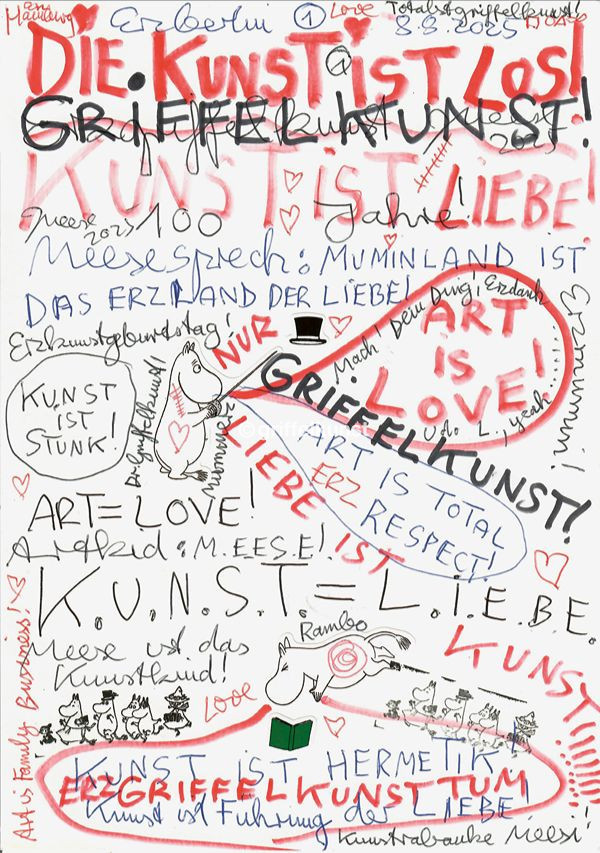 Erzberlin ① Love Totalstgriffelkunst!
8.8.2025
DIE KUNST IST LOS!
GRIFFELKUNST!
2025
KUNST IST LIEBE!
Meese 2025 100 Jahre!
Meesesprech: MUMINLAND IST
DAS ERZLAND DER LIEBE!
Erzkunstgeburtstag!
NUR
LIEBE IST
KUNST
Mach! Dein Ding! Erzdank
ART
IS
LOVE!
Udo L., yeah
GRIFFELKUNST!
KUNST
IST
STUNK!
Dr. Griffelkunst!
ART IS TOTAL
ERZ
RESPECT!
ART = LOVE!
Artkid: M.EES.E!
K.U.N.S.T. = L.I.E.B.E.
Meese ist das
Kunstkind!
Rambo
Love
Art is Family Business!
KUNST IST HERMETIK!
ERZGRIFFELKUNSTTUM
Kunst ist Führung der LIEBE!
Kunstrabauke Meese!